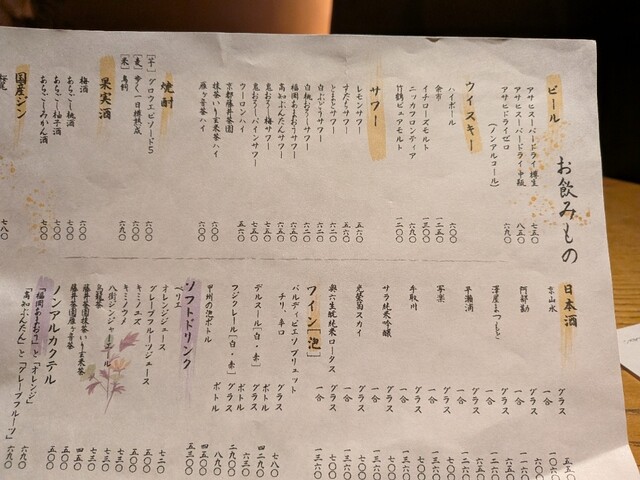 お飲みもの
ビール
アサヒスーパードライ樽生 七五〇
アサヒスーパードライ中瓶 八五〇
アサヒドライゼロ 六九〇
(ノンアルコール)
ウイスキー
ハイボール 六〇〇
余市 一二〇〇
イチローズモルト 一三〇〇
ニッカフロンティア
竹鶴ピュアモルト 一二〇〇
サワー
レモンサワー 五五〇
すだちサワー
とまとサワー
白ぶどうサワー
白桃おろしサワー
福岡あまおうサワー
高知ぶんたんサワー
鬼おろし梅サワー
鬼おろしパインサワー
ウーロンハイ
京都藤井茶園
抹茶いり玄米茶ハイ 六〇〇
雁ヶ音茶ハイ 六〇〇
焼酎
[芋] グロウエピソード5 六〇〇
[麦] 歩く一日樽熟成 六〇〇
[米] 鳥飼 六九〇
果実酒
梅酒 六〇〇
あらごし桃酒 七〇〇
あらごし柚子酒 七〇〇
あらごしみかん酒 七〇〇
国産ジン
七八〇
日本酒
京山水 グラス 五五〇
一合 一〇六〇
阿部勘 グラス
一合
澤屋まつもと グラス
一合
平瀬浦 グラス
一合
寫楽 グラス
一合
手取川 グラス
一合
サラ純米吟醸 グラス
一合
光栄菊スカイ グラス 七〇〇
一合 一三六〇
與六生酛純米ロータス グラス 七〇〇
一合 一三六〇
ワイン[泡]
バルディビエソブリュット グラス 七八〇
チリ、辛口 ボトル 四二九〇
デルスール[白・赤] グラス 六三〇
ボトル 二九〇〇
フジクレール[白・赤] グラス 八九〇
ボトル 四五〇〇
甲州の泡ボトル 五三〇〇
ソフトドリンク
ペリエ
オレンジジュース
グレープフルーツジュース 五〇〇
キミノユズ 七三〇
キミノウメ 七三〇
八街ジンジャーエール
烏龍茶 四五〇
藤井茶園抹茶いり玄米茶 五〇〇
藤井茶園雁ヶ音茶 五〇〇
ノンアルカクテル
「福岡あまおう」と「オレンジ」 六九〇
「高知ぶんたん」と「グレープフルーツ」 六九〇